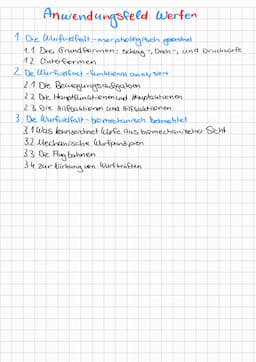 Anwendungsfeld Werfen
1. Die Wurfvielfalt - morphologisch geordnet
1.1 Drei Grundformen: Schlag-, Dreh-, und Druckwürfe
1.2 Unterformen
2. Die Wurfvielfalt - funktional analysiert
2.1 Die Bewegungsaufgaben
2.2 Die Hauptfunktionen und Hauptaktionen
2.3 Die Hilfsaktionen und Hilfsaktionen
3. Die Wurfvielfalt - biomechanisch betrachtet
3.1 Was kennzeichnet Würfe aus biomechanischer Sicht
3.2 Mechanische Wurfprinzipien
3.3 Die Flugbahnen
3.4 Zur Wirkung von Wurfkräften